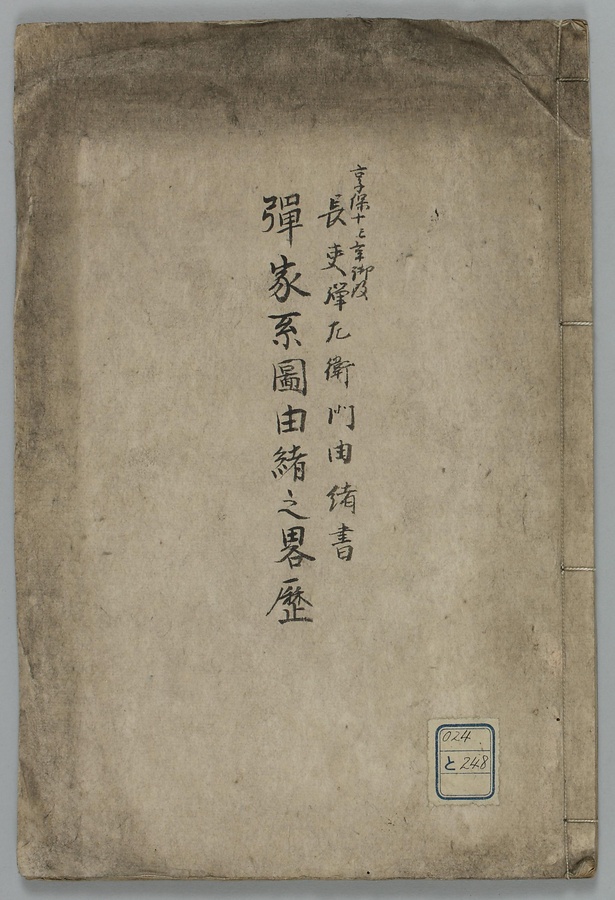 享保十
長吏彈左衛門由緒書
彈家系圖由緒之畧歷
024
と248